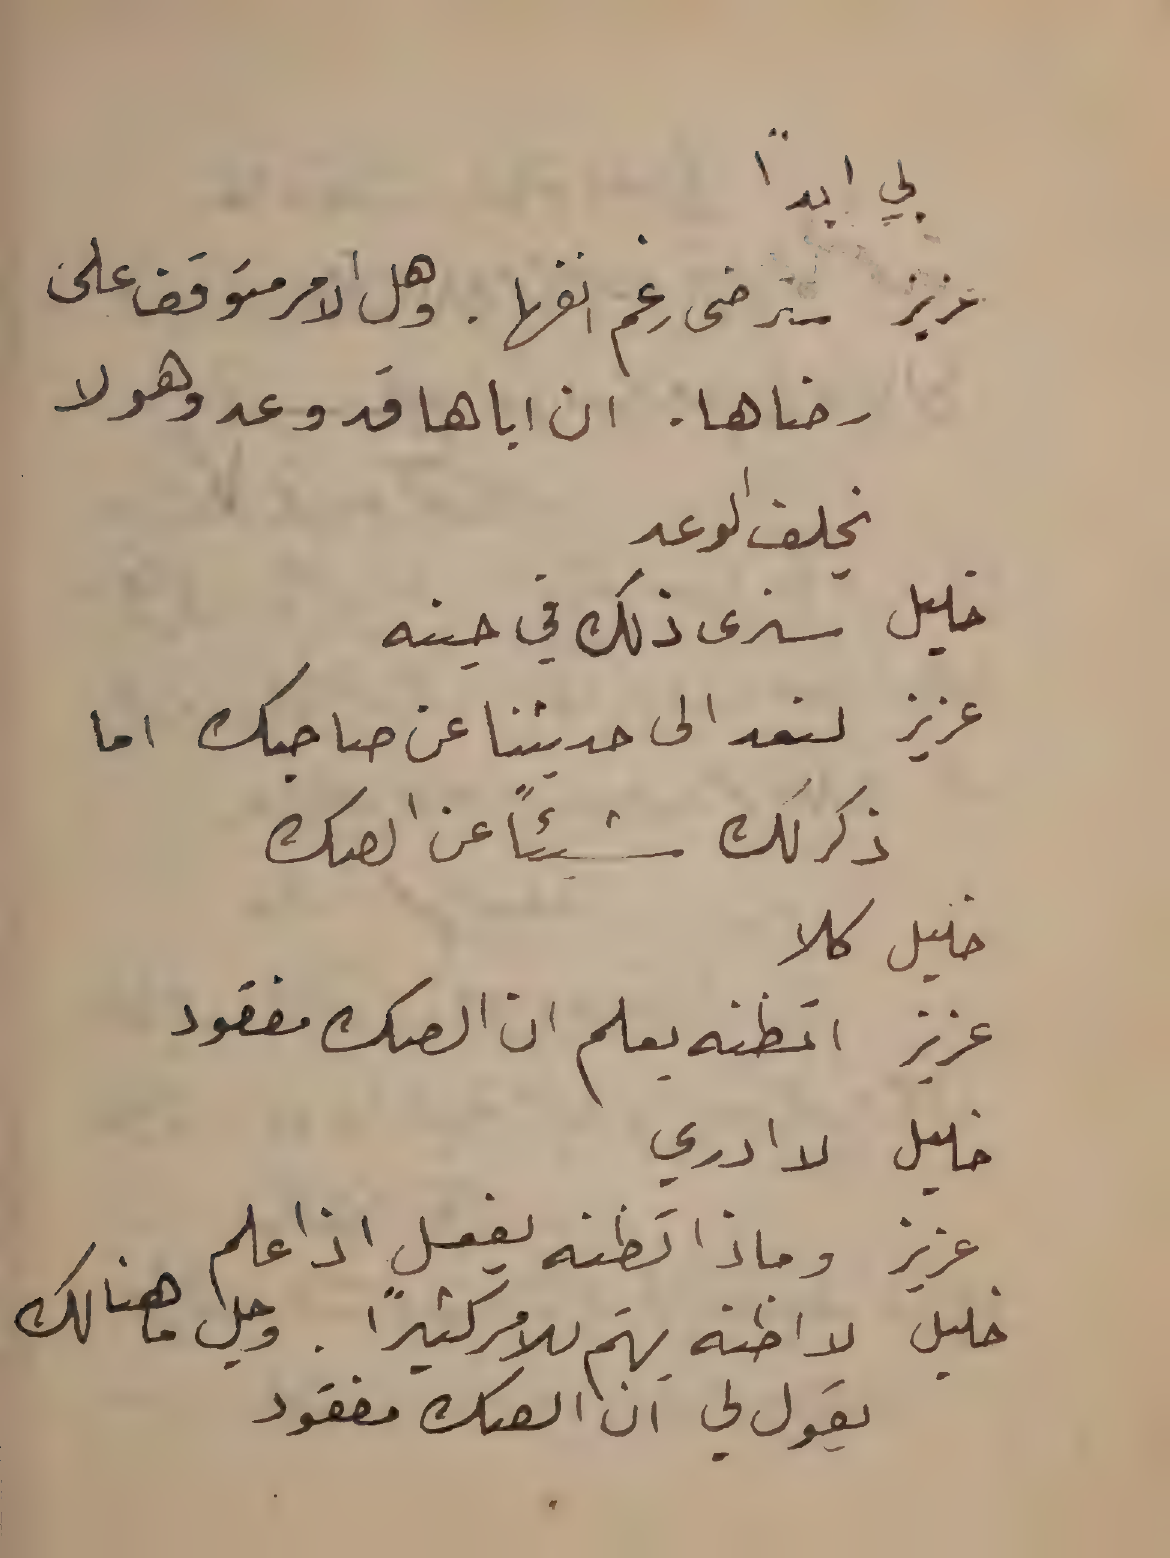 بي ابداً
عزيز سترضى رغم انفها . وهل الامر متوقف على
رضاها . ان اباها قد وعد وهو لا
يخلف الوعد
خليل سنرى ذلك في حينه
عزيز لنعد الى حديثنا عن صاحبك اما
ذكر لك شيئاً عن الصك
خليل كلا
عزيز اتظنه يعلم ان الصك مفقود
خليل لا ادري
عزيز وماذا تظنه يفعل اذا علم
خليل لا اظنه يهتم للامر كثيراً . وجل ما هنالك
يقول لي ان الصك مفقود